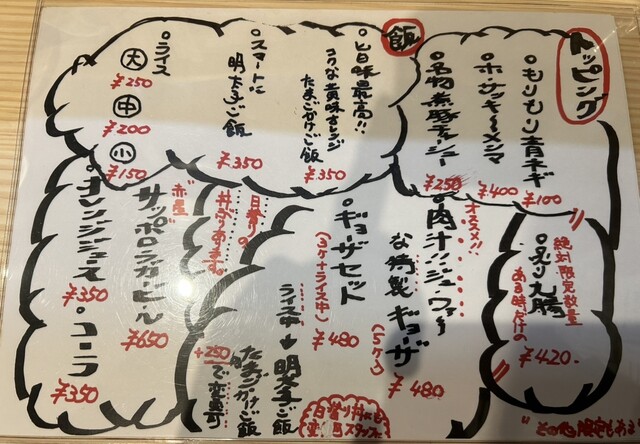 トッピング
・もりもり青ネギ
¥100
・ホサッキ〜メンマ
¥400
・名物煮豚チャーシュー
¥250
飯
・旨味最高!!
コクな黄味オレンジ
たまごかけご飯
¥350
・スマートに
明太子ご飯
¥350
・ライス
大 ¥250
中 ¥200
小 ¥150
絶対限定数量
ある時だけの
・炙り丸腸
¥420-
オススメ!!
・肉汁!!ジュワァ〜
な特製ギョーザ
(5ケ入)
¥480
・ギョーザセット
(3ケ+ライス中)
¥480
ライス中→明太子ご飯
たまごかけご飯
+250で変更可
・日替りの
丼ぶりあります
・赤星
サッポロラガービール
¥650
・オレンジジュース
¥350
・コーラ
¥350